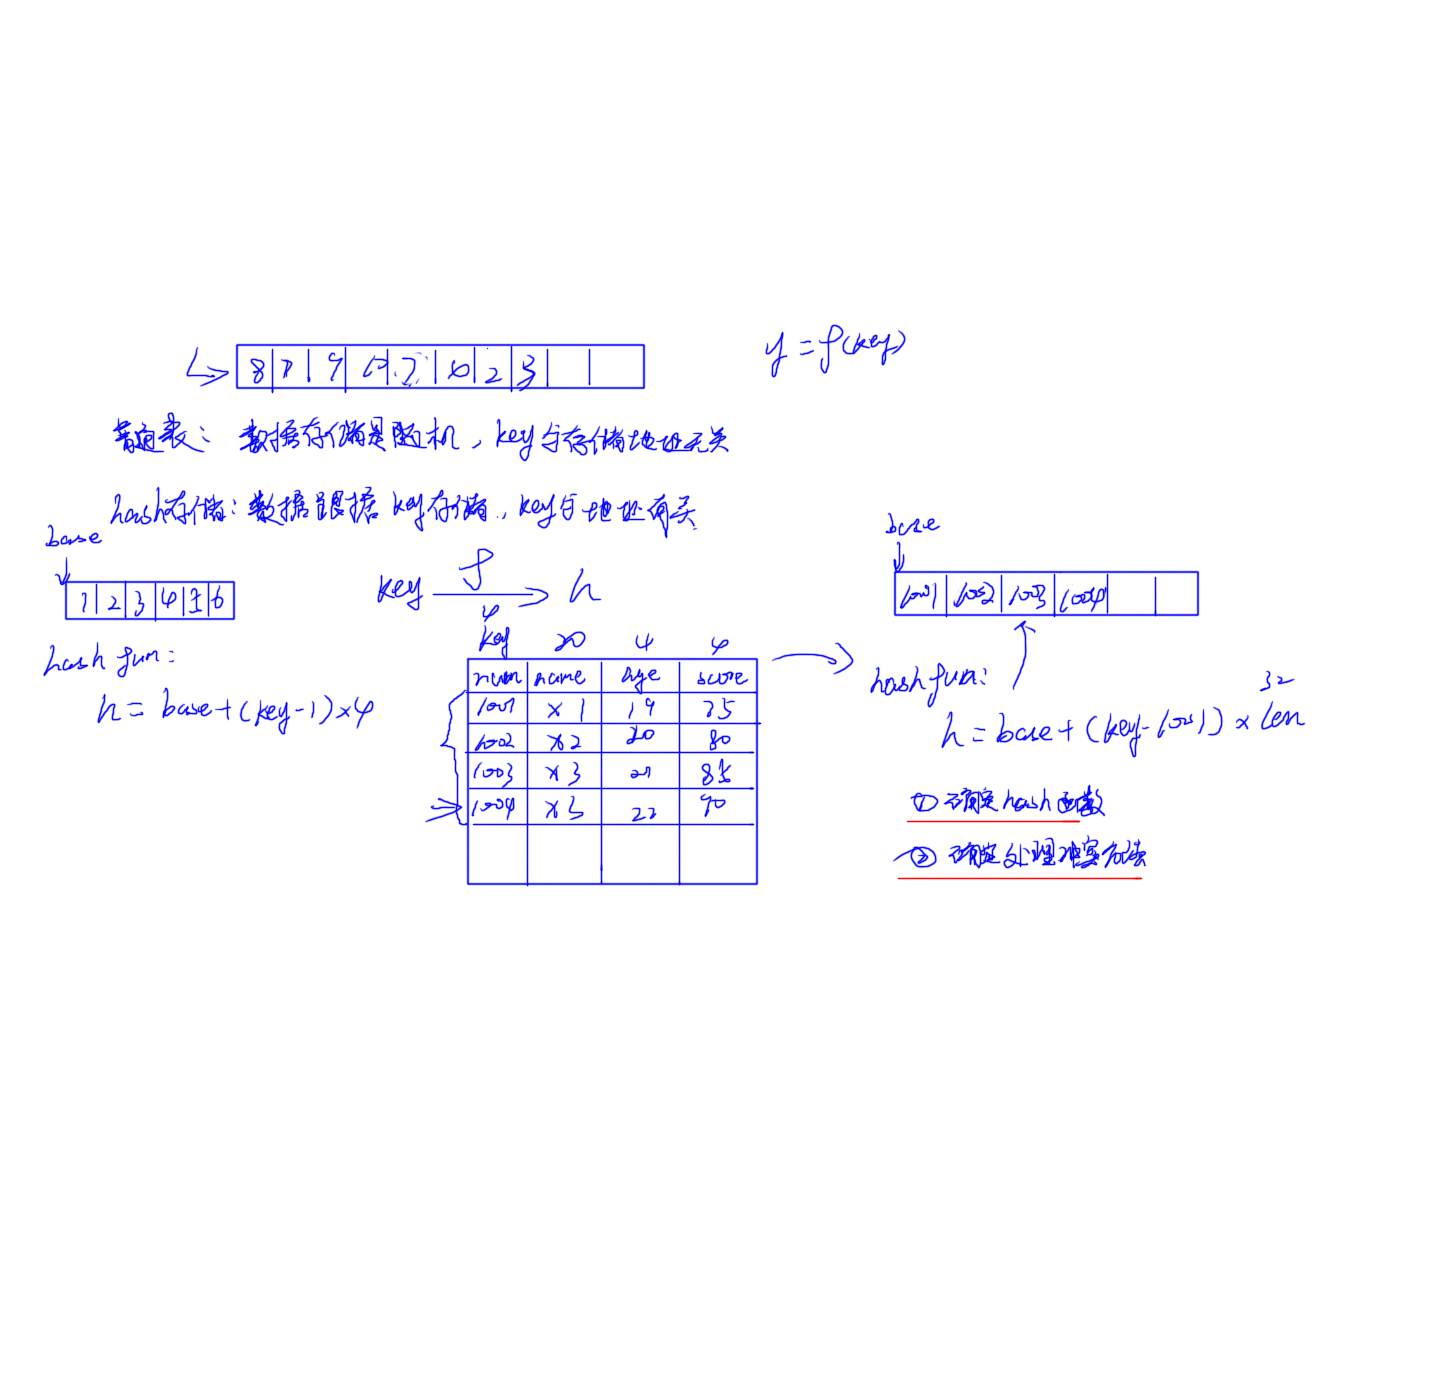 y = f(key)
8 7 9 6 2 3
普通表: 数据存储是随机, key与存储地址无关
hash存储: 数据跟据 key存储, key与地址有关
base
1 2 3 4 5 6
hash fun:
h = base+(key-1)×4
key f h
4 20 4 4
key
num name age score
1001 x1 19 75
1002 x2 20 80
1003 x3 21 85
1004 x3 22 90
base
1001 1002 1003 1004
hash fun:
32
h = base+(key-1001)×len
① 确定hash函数
② 确定处理冲突方法